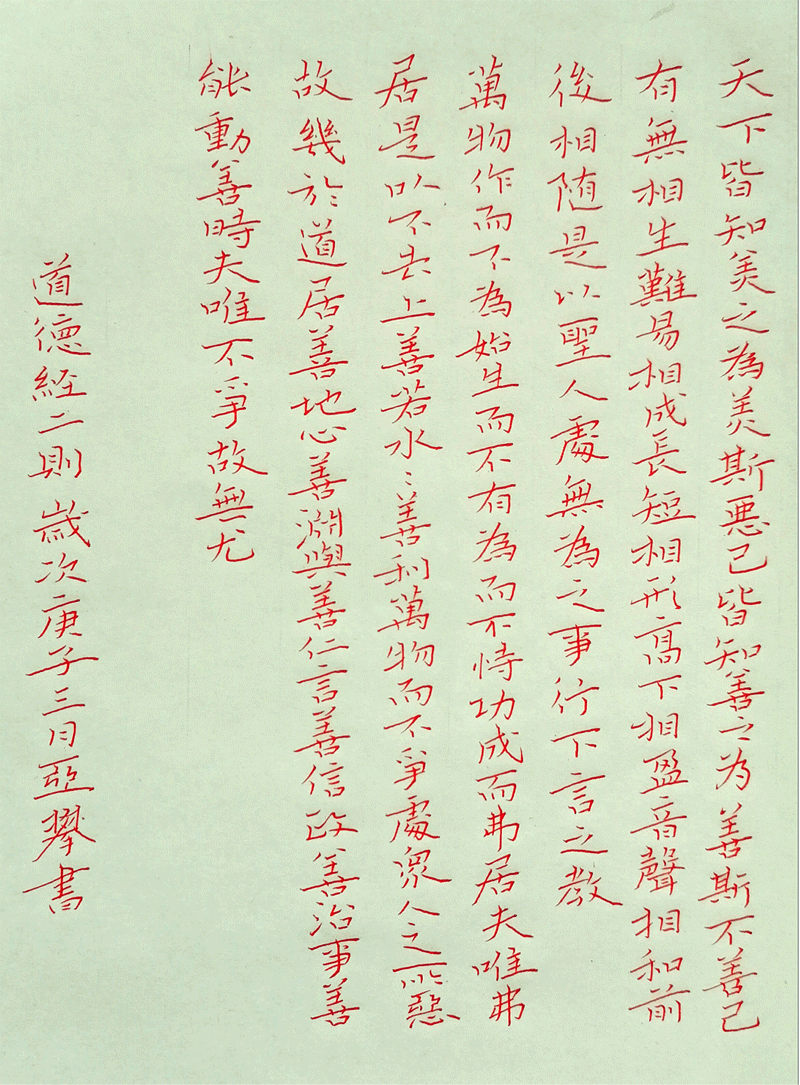 天下皆知美之為美斯惡已皆知善之為善斯不善已
有無相生難易相成長短相形高下相盈音聲相和前
後相随是以聖人處無為之事行下言之教
萬物作而不為始生而不有為而不恃功成而弗居夫唯弗
居是以不去上善若水〻善利萬物而不爭處衆人之所惡
故幾於道居善地心善淵與善仁言善信政善治事善
能動善時夫唯不爭故無尤
道德經二則歲次庚子三月亞攀書